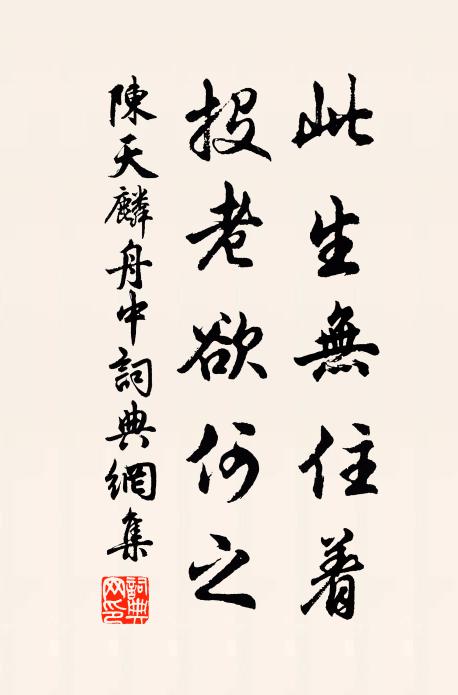 此生無住着
投老欲何之
陳天麟舟中詞典網集
詞典網印